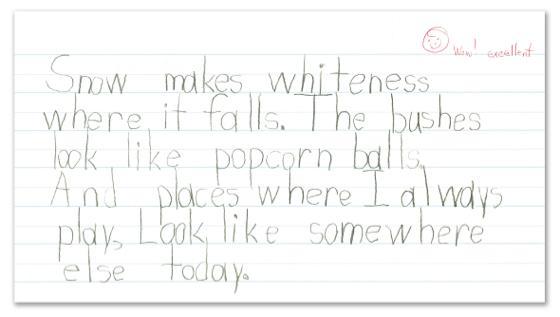 Wow! excellent
Snow makes whiteness
where it falls. The bushes
look like popcorn balls.
And places where I always
play, Look like somewhere
else today.